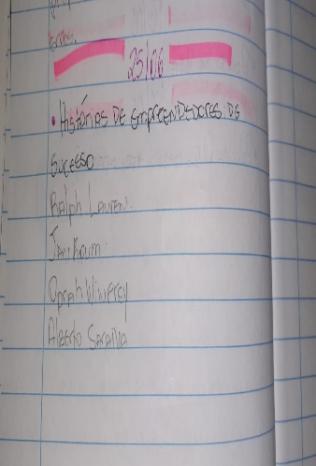 25/06
• Histórias de empreendedores de
sucesso
Ralph Lauren.
Jan Koum.
Oprah Winfrey
Alberto Saraiva